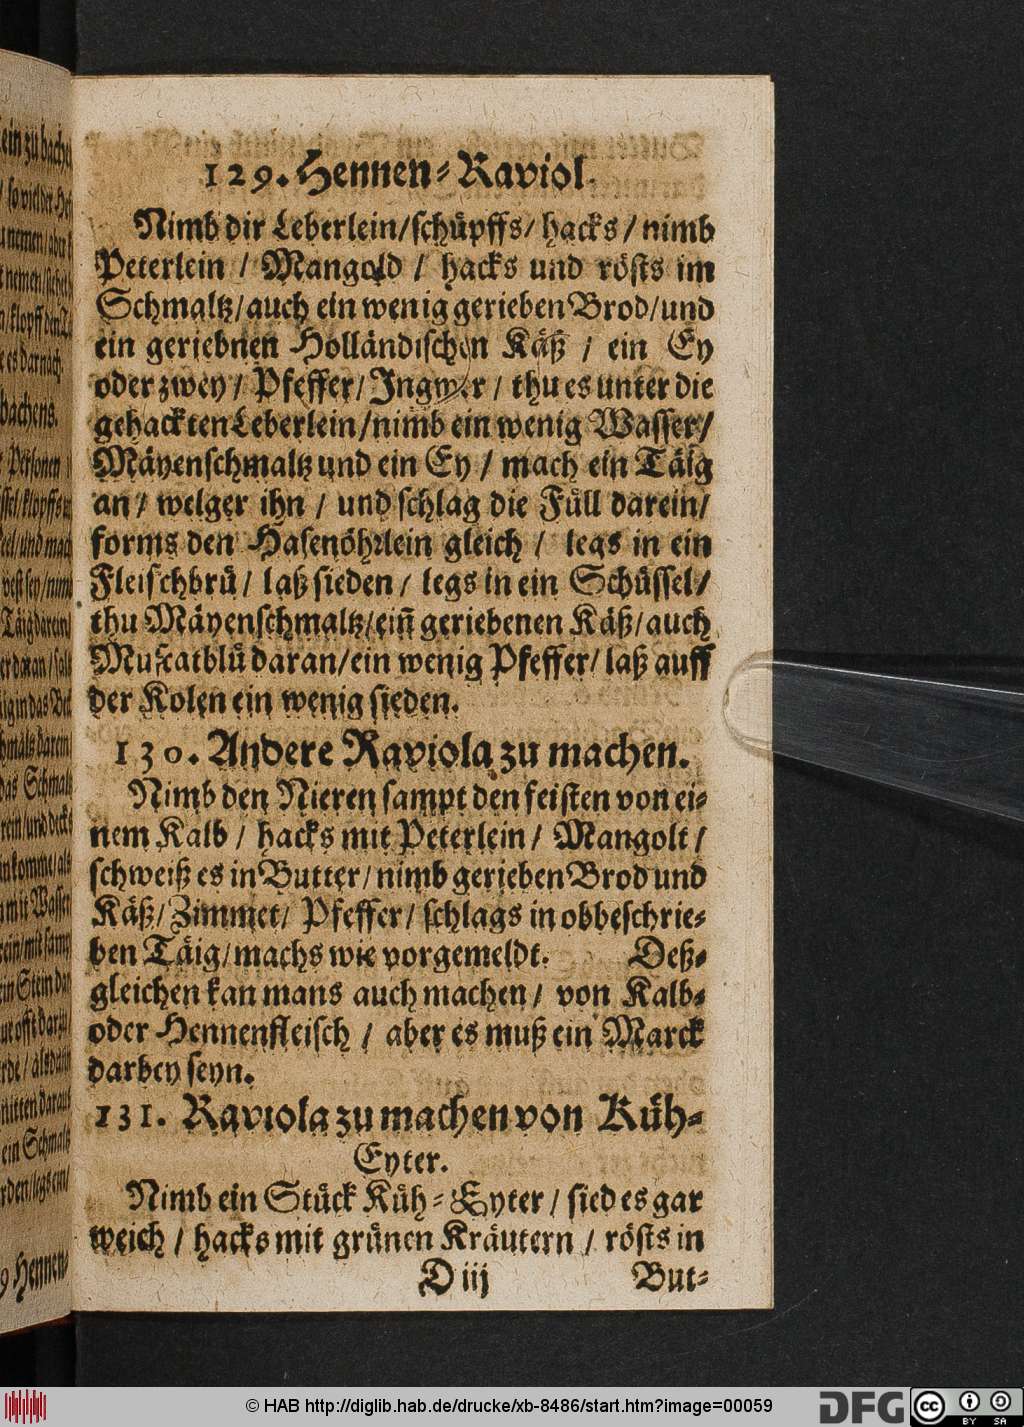 129. Hennen-Raviol.
Nimb dir Leberlein/schüpffs/hacks/nimb
Peterlein / Mangold / hacks und rösts im
Schmaltz/auch ein wenig gerieben Brod/und
ein geriebnen Holländischen Käß / ein Ey
oder zwey / Pfeffer/Ingwer / thu es unter die
gehackten Leberlein/nimb ein wenig Wasser/
Mäyenschmaltz und ein Ey / mach ein Täig
an / welger ihn / und schlag die Füll darein/
forms den Hasenöhrlein gleich / legs in ein
Fleischbrü / laß sieden / legs in ein Schüssel/
thu Mäyenschmaltz/ein̄ geriebenen Käß/auch
Muscatblü daran/ein wenig Pfeffer/laß auff
der Kolen ein wenig sieden.
130. Andere Raviola zu machen.
Nimb den Nieren sampt den feisten von ei-
nem Kalb / hacks mit Peterlein / Mangolt /
schweiß es in Butter/nimb gerieben Brod und
Käß/Zimmet/ Pfeffer/ schlags in obbeschrie-
ben Täig/machs wie vorgemeldt. Deß-
gleichen kan mans auch machen / von Kalb-
oder Hennenfleisch / aber es muß ein Marck
darbey seyn.
131. Raviola zu machen von Küh-
Eyter.
Nimb ein Stück Küh-Eyter / sied es gar
weich / hacks mit grünen Kräutern / rösts in
D iij But-
© HAB http://diglib.hab.de/drucke/xb-8486/start.htm?image=00059
DFG cc BY SA